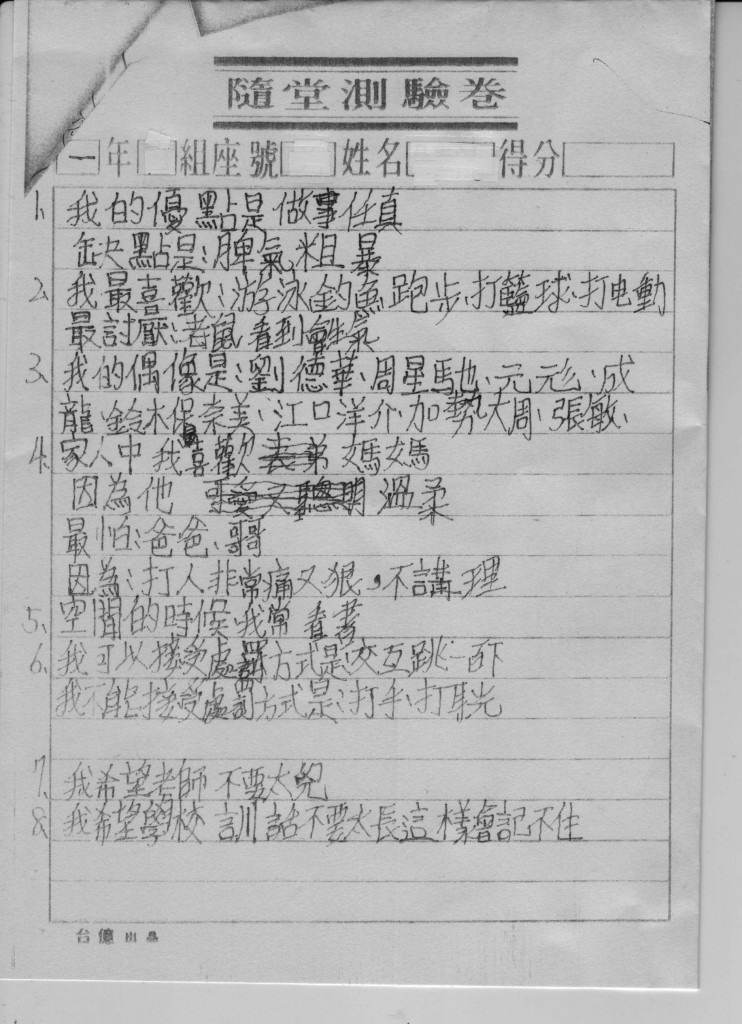 隨堂測驗卷
一年 組座號 姓名 得分
1. 我的優點是做事任真
缺點是:脾氣粗暴
2. 我最喜歡:游泳、釣魚、跑步、打籃球、打电動
最討厭:老鼠 看到會生氣
3. 我的偶像是:劉德華、周星馳、元元么、成
龍、鈴木保奈美、江口洋介、加勢大周、張敏、
4. 家人中我最喜歡 媽媽
因為他 溫柔
最怕:爸爸、哥哥
因為:打人非常痛又狠,不講理
5. 空閒的時候我常看書
6. 我可以接受處罰方式是:交互跳一百下
我不能接受處罰方式是:打手、打耳光
7. 我希望老師不要太兇
8. 我希望學校訓話不要太長這樣會記不住
台億出品